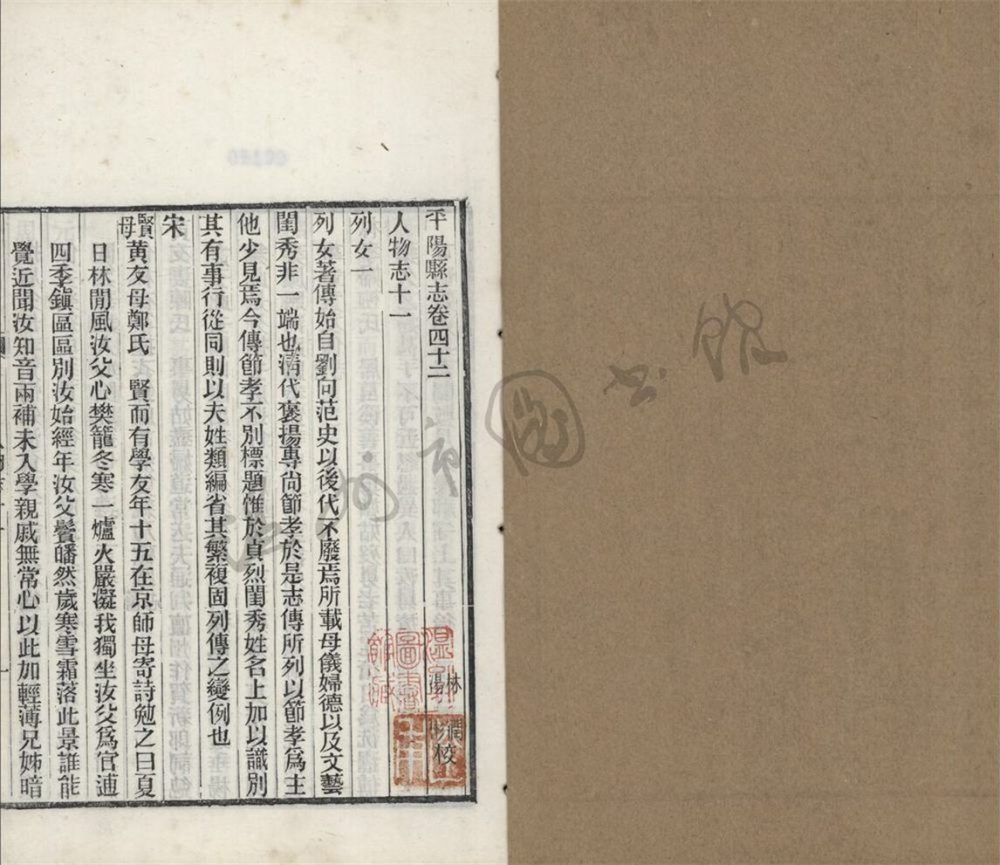 平陽縣志卷四十二
人物志十一
林 潤 校
列女一
列女著傳始自劉向范史以後代不廢焉所載母儀婦德以及文藝
閨秀非一端也清代褒揚專尚節孝於是志傳所列以節孝爲主
他少見焉今傳節孝不別標題惟於貞烈閨秀姓名上加以識別
其有事行從同則以夫姓類編省其繁複固列傳之變例也
宋
賢母黄友母鄭氏 賢而有學友年十五在京師母寄詩勉之曰夏
日林閒風汝父心樊籠冬寒一爐火嚴凝我獨坐汝父爲官逋
四季鎭區區別汝始經年汝父鬢皤然歲寒雪霜落此景誰能
覺近聞汝知音兩補未入學親戚無常心以此加輕薄兄姊暗
一
温州市圖書館
溫州
圖書
館藏